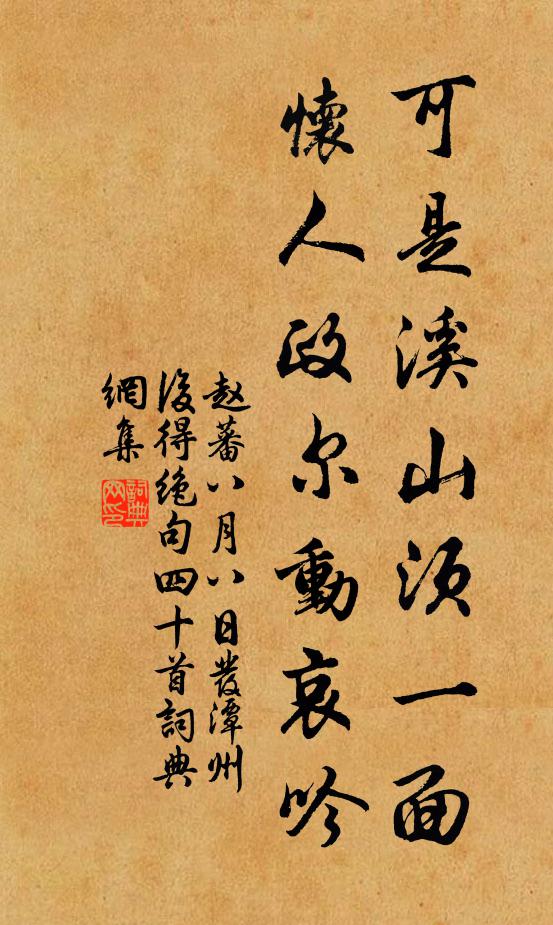 可是溪山须一面
懷人政尔動哀吟
赵蕃八月八日發潭州
後得绝句四十首詞典
網集
詞典網印